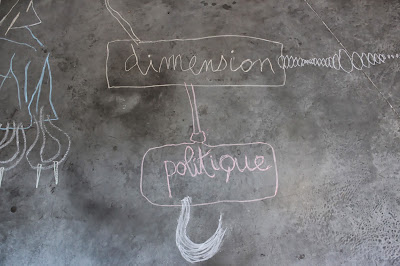 dimension
politique